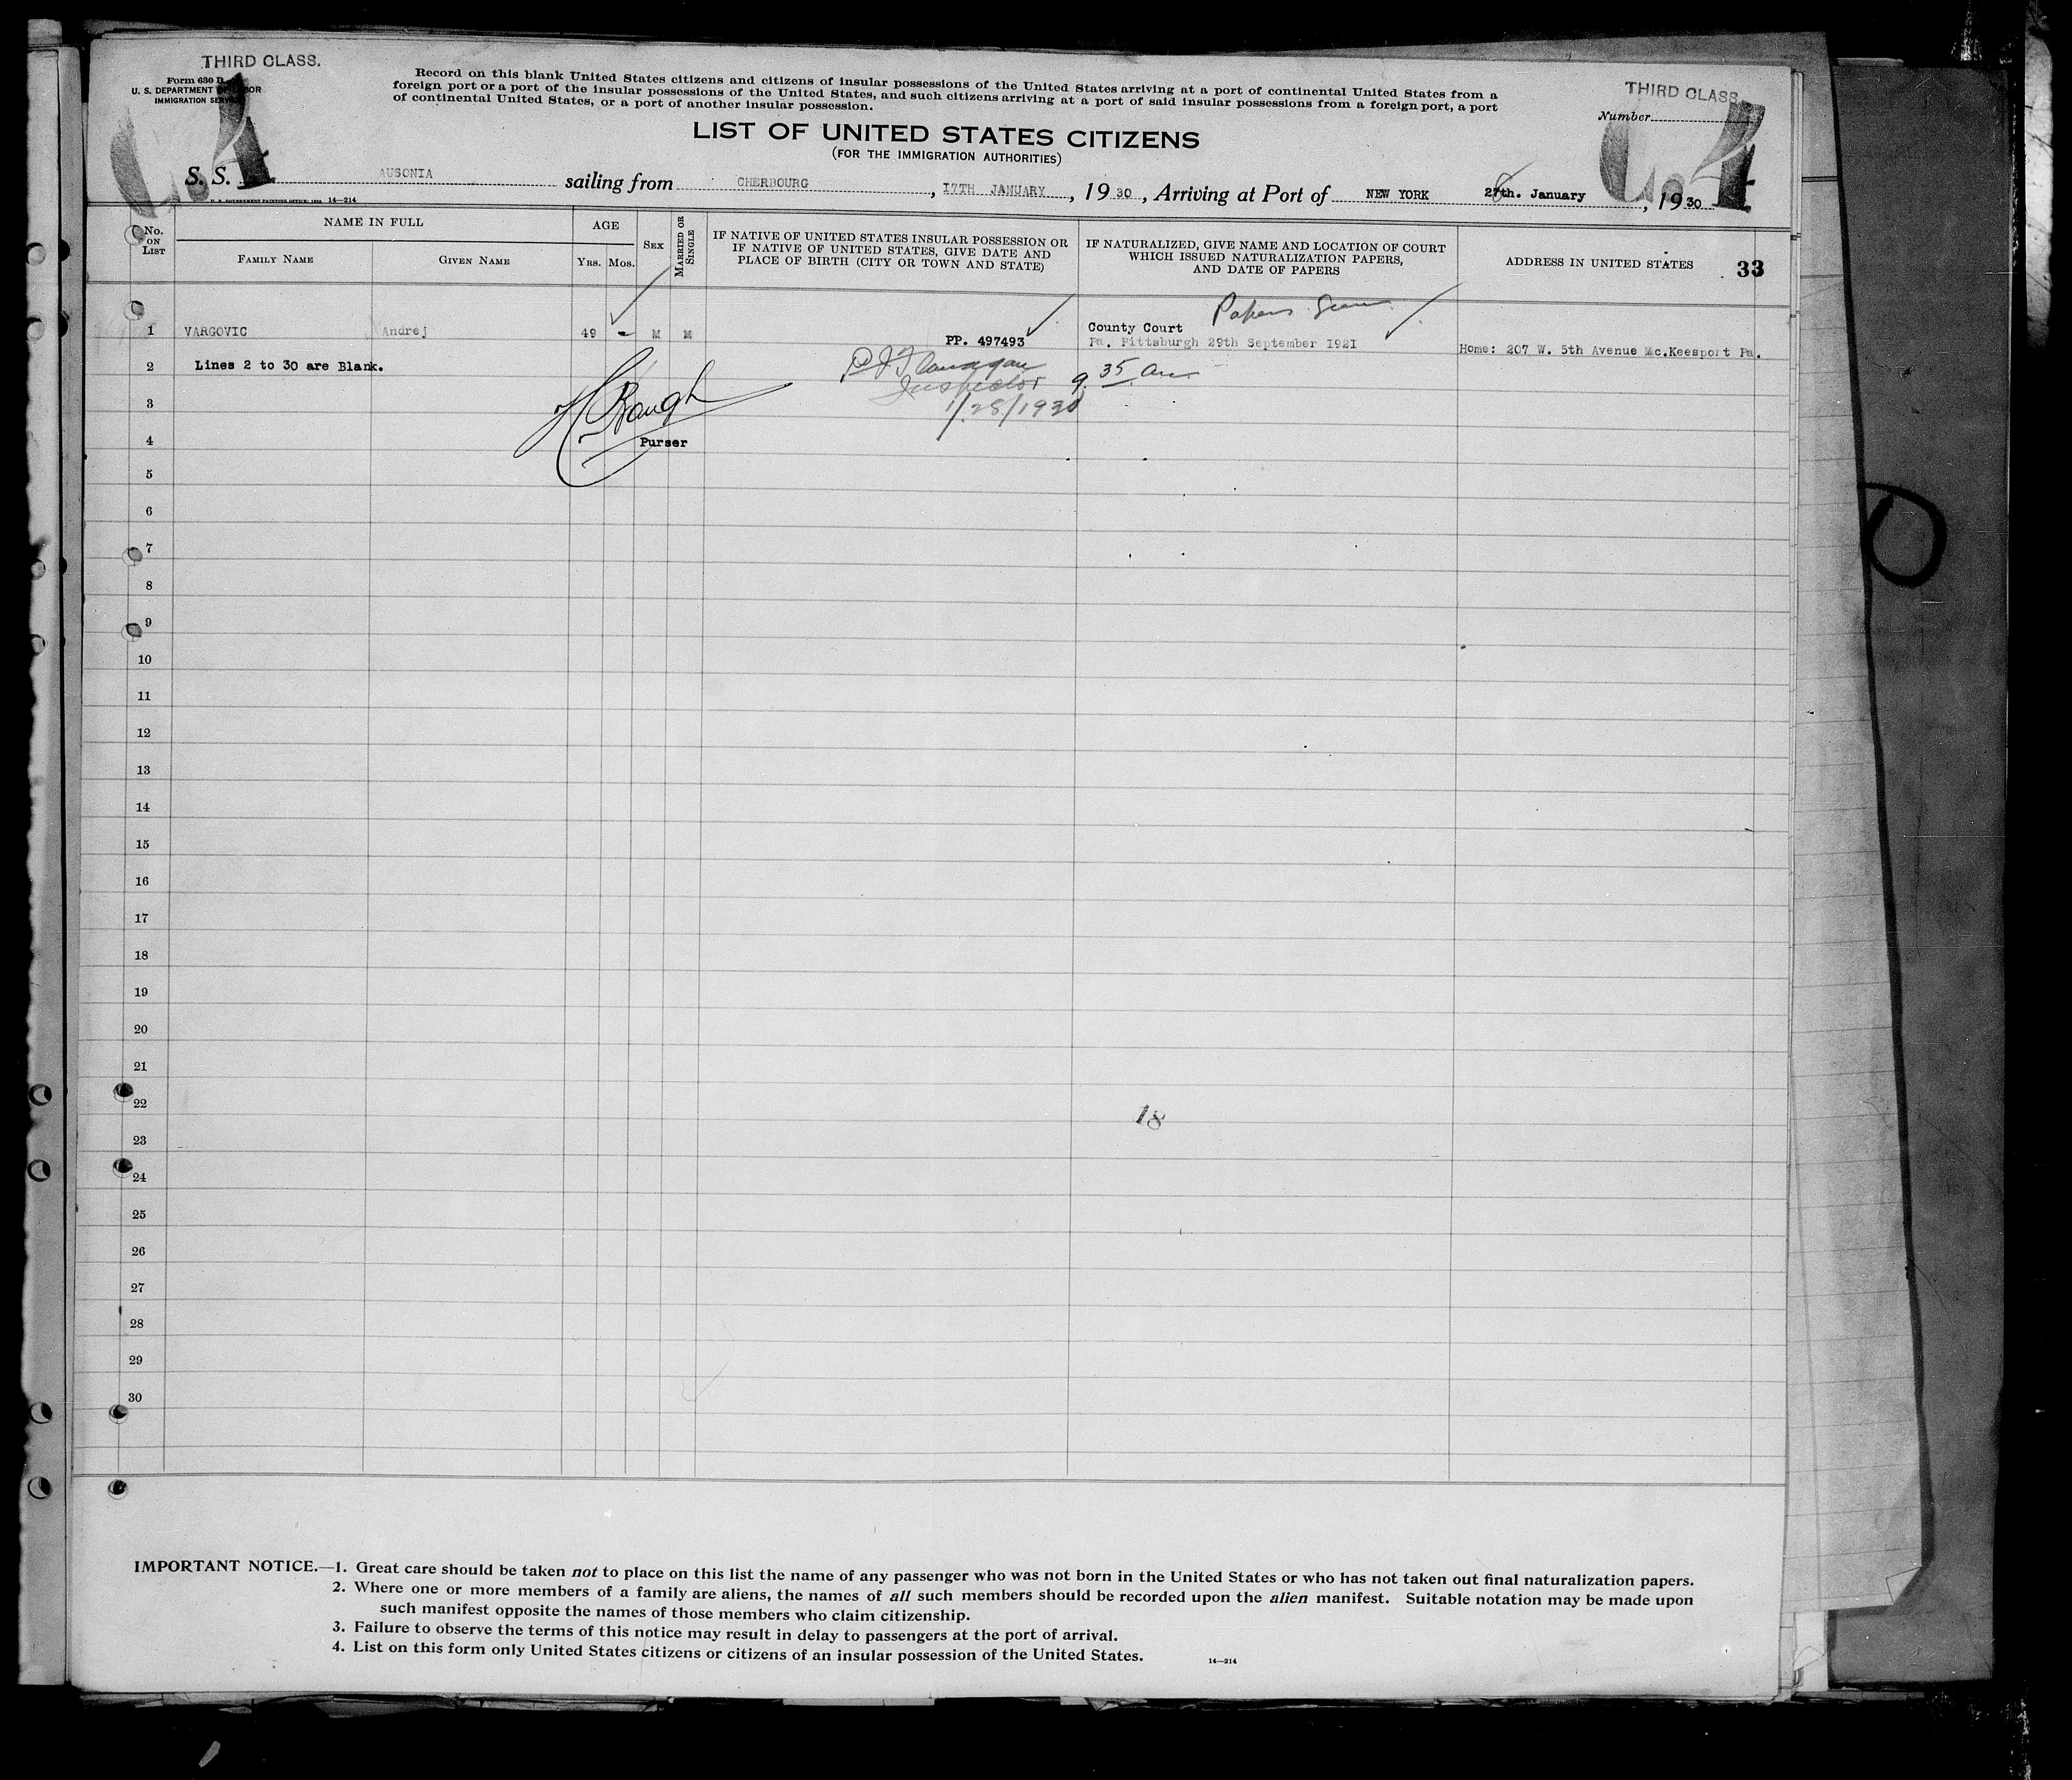 THIRD CLASS.
Form 630 B
U. S. DEPARTMENT OF LABOR
IMMIGRATION SERVICE
Record on this blank United States citizens and citizens of insular possessions of the United States arriving at a port of continental United States from a
foreign port or a port of the insular possessions of the United States, and such citizens arriving at a port of said insular possessions from a foreign port, a port
of continental United States, or a port of another insular possession.
THIRD CLASS.
Number
LIST OF UNITED STATES CITIZENS
(FOR THE IMMIGRATION AUTHORITIES)
S. S. AUSONIA sailing from CHERBOURG, 17TH JANUARY, 1930, Arriving at Port of NEW YORK 28th. January, 1930
U. S. GOVERNMENT PRINTING OFFICE: 1929 14—214
No. ON LIST
NAME IN FULL
FAMILY NAME
GIVEN NAME
AGE
YRS. MOS.
SEX
MARRIED OR SINGLE
IF NATIVE OF UNITED STATES INSULAR POSSESSION OR
IF NATIVE OF UNITED STATES, GIVE DATE AND
PLACE OF BIRTH (CITY OR TOWN AND STATE)
IF NATURALIZED, GIVE NAME AND LOCATION OF COURT
WHICH ISSUED NATURALIZATION PAPERS,
AND DATE OF PAPERS
ADDRESS IN UNITED STATES 33
Papers Seen
1 VARGOVIC Andrej 49 - M M PP. 497493 County Court
Pa. Pittsburgh 29th September 1921
Home: 207 W. 5th Avenue Mc.Keesport Pa.
2 Lines 2 to 30 are Blank.
P J Flanagan
Inspector 9.35 am
3 1/28/1930
4 Purser
5
6
7
8
9
10
11
12
13
14
15
16
17
18
19
20
21
22
18
23
24
25
26
27
28
29
30
IMPORTANT NOTICE.—1. Great care should be taken not to place on this list the name of any passenger who was not born in the United States or who has not taken out final naturalization papers.
2. Where one or more members of a family are aliens, the names of all such members should be recorded upon the alien manifest. Suitable notation may be made upon
such manifest opposite the names of those members who claim citizenship.
3. Failure to observe the terms of this notice may result in delay to passengers at the port of arrival.
4. List on this form only United States citizens or citizens of an insular possession of the United States.
14—214